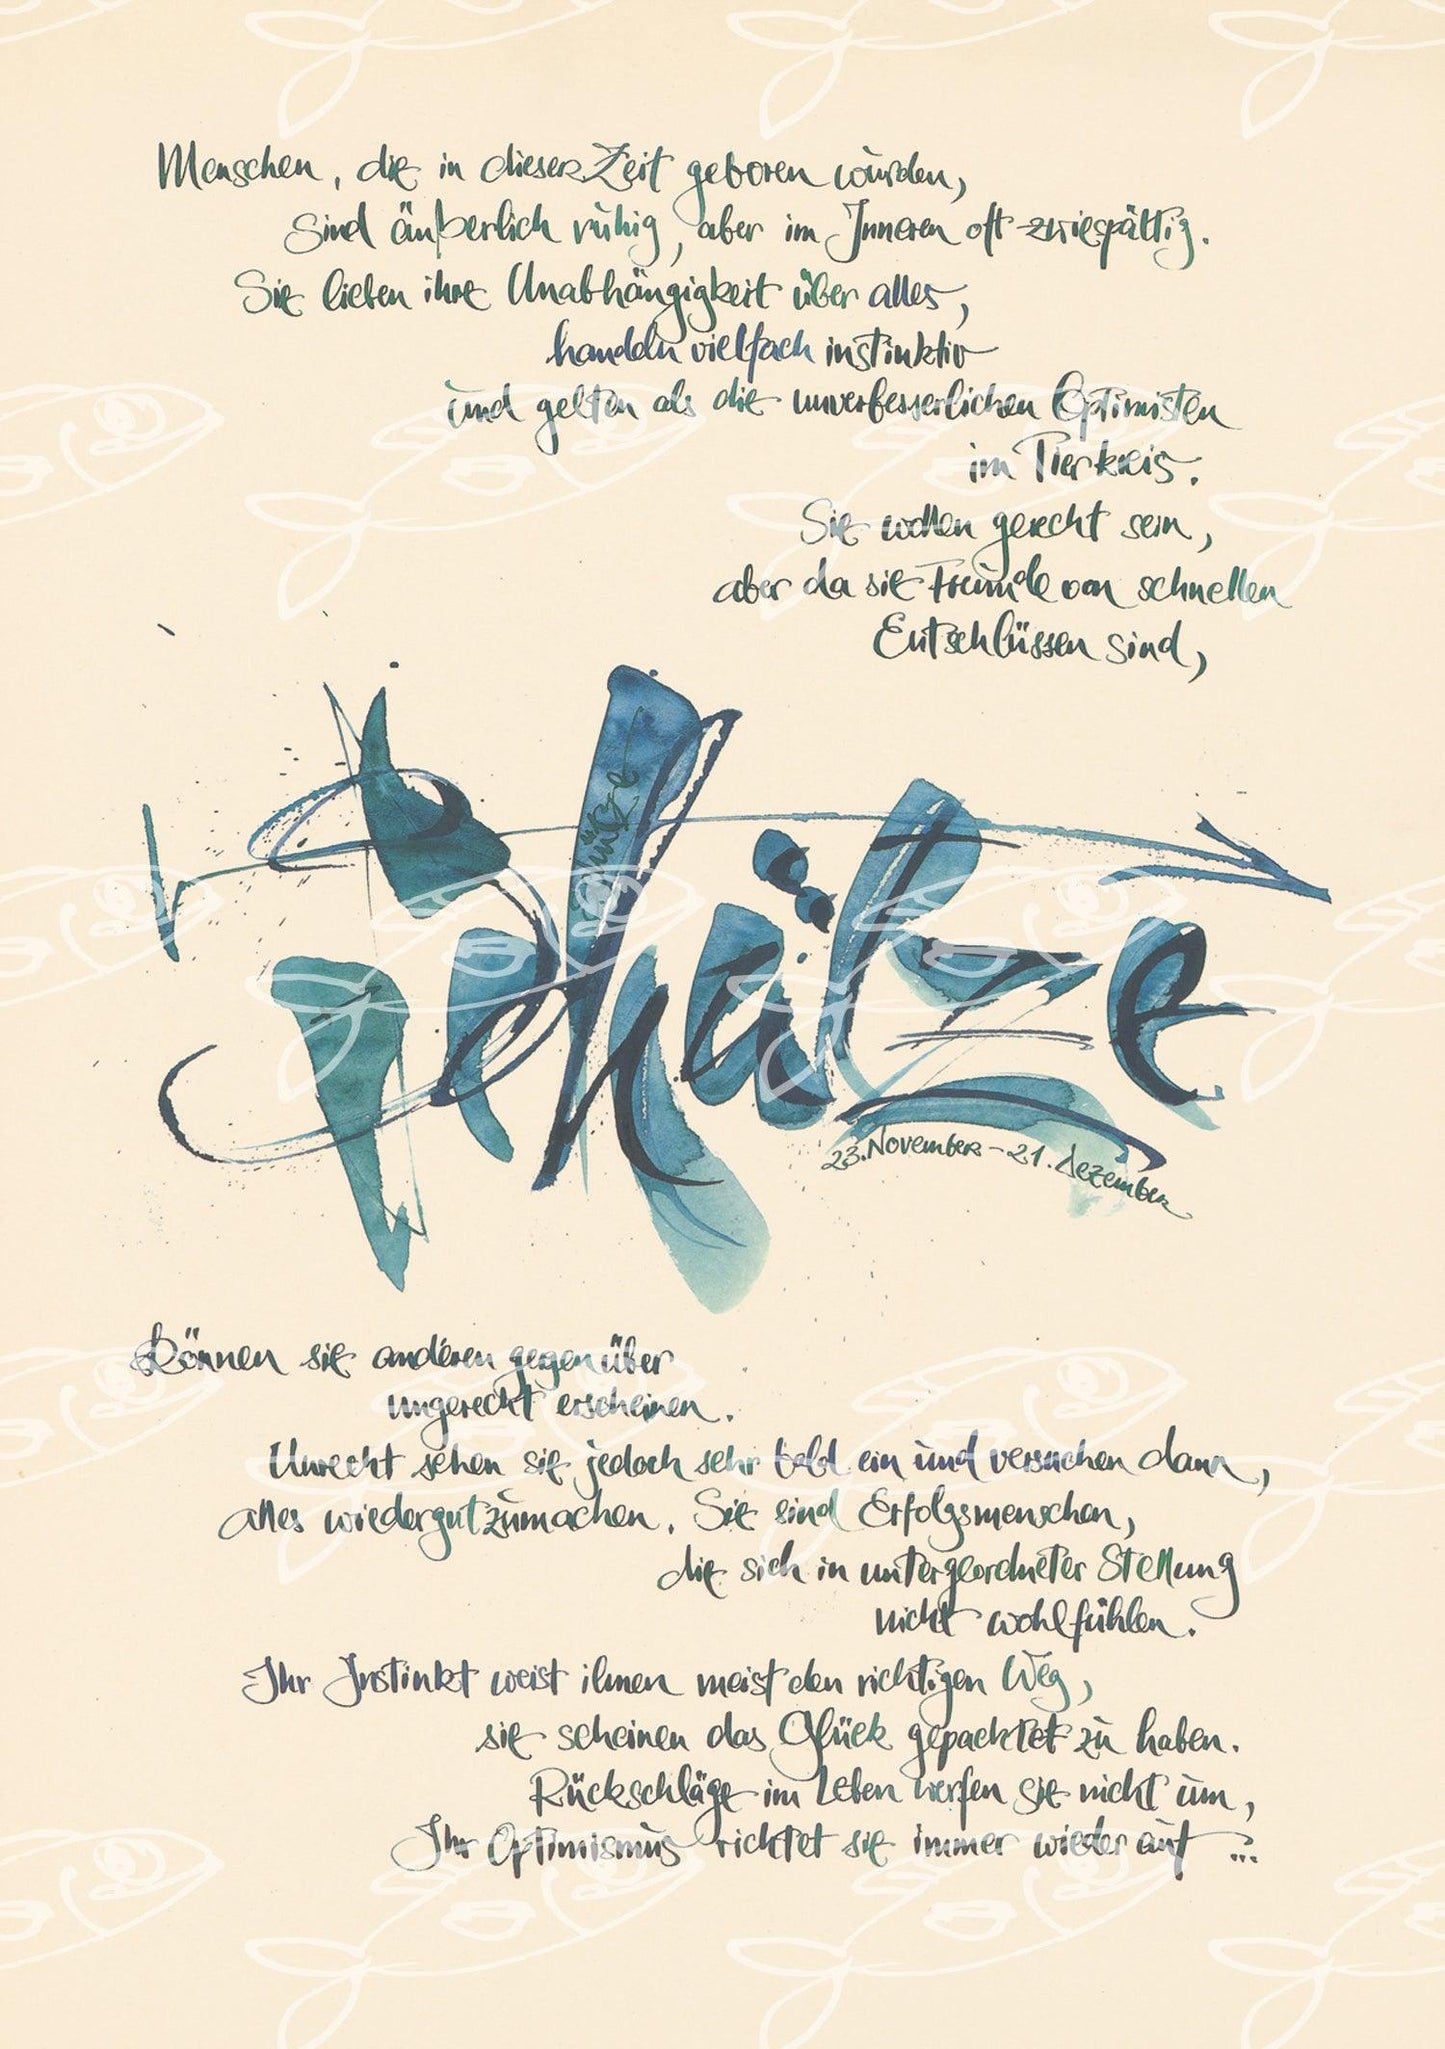 Menschen, die in dieser Zeit geboren wurden,
sind äußerlich ruhig, aber im Inneren oft zwiespältig.
Sie lieben ihre Unabhängigkeit über alles,
handeln vielfach instinktiv
und gelten als die unverbesserlichen Optimisten
im Tierkreis.
Sie wollen gerecht sein,
aber da sie Freunde von schnellen
Entschlüssen sind,
Schütze
23. November - 21. Dezember
Können sie anderen gegenüber
ungerecht erscheinen.
Unrecht sehen sie jedoch sehr bald ein und versuchen dann,
alles wiedergutzumachen. Sie sind Erfolgsmenschen,
die sich in untergeordneter Stellung
nicht wohlfühlen.
Ihr Instinkt weist ihnen meist den richtigen Weg,
sie scheinen das Glück gepachtet zu haben.
Rückschläge im Leben werfen sie nicht um,
Ihr Optimismus richtet sie immer wieder auf ...